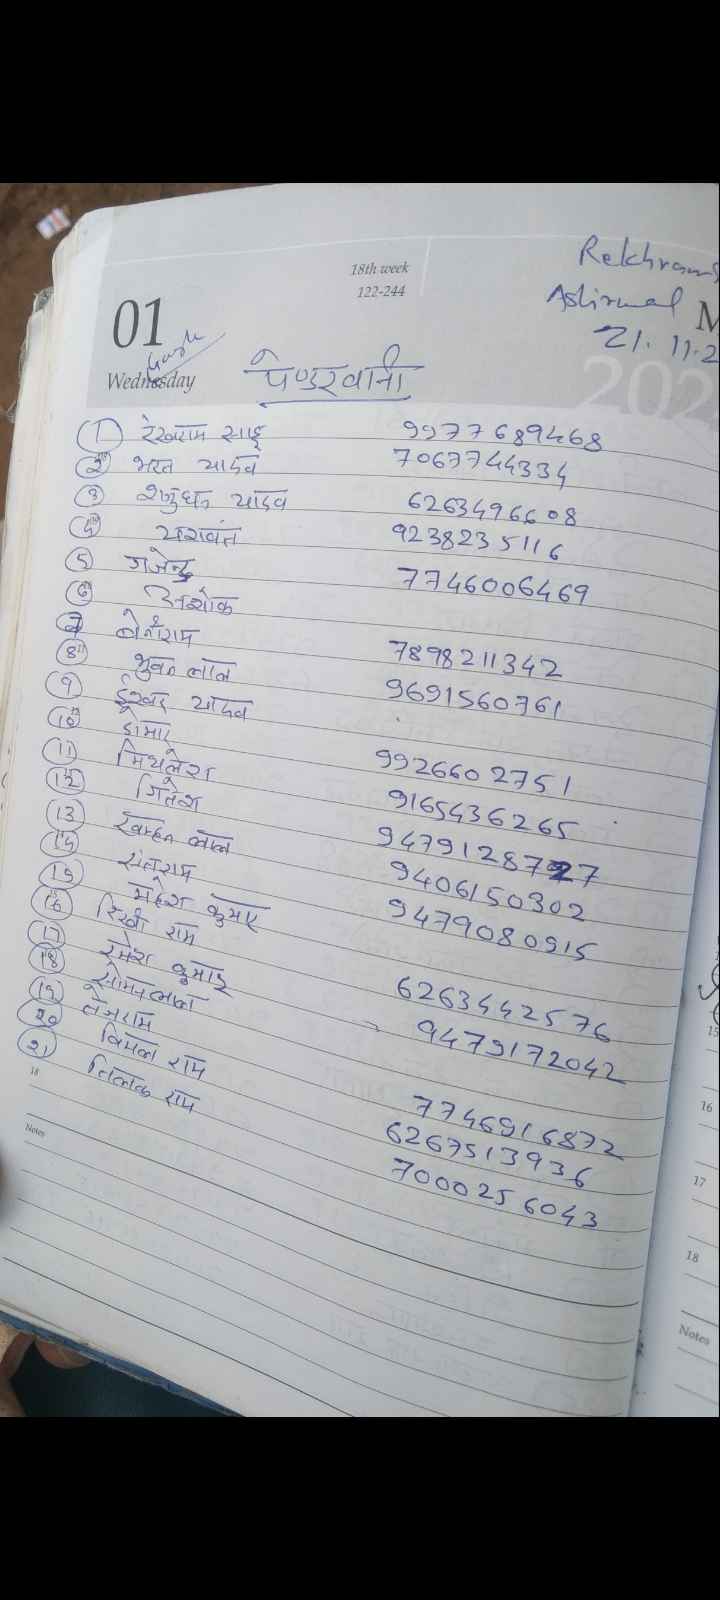 18th week
122-244
Rekhram
Ashirwad
21.11.2
01
Wednesday
202
पेण्डरवानी
1 रेखराम साहू 9977689468
2 भरत यादव 7067744334
3 शत्रुघन यादव 6263496608
4 यशवंत 9238235116
5 गजेन्द्र 7746006469
6 अशोक
7 बेनीराम 7898211342
8 भुवन लाल 9691560761
9 ईश्वर यादव
10 डोमार 9926602751
11 मिथलेश 9165436265
12 जितेश 9479128727
13 लाल 9406150302
14 संतराम 9479080915
15 महेश कुमार
16 रिखी राम 6263442576
17 रमेश कुमार 9479172042
18 सोमनलाल
19 तेजराम 7746916872
20 विमल राम 6267513936
21 तिलक राम 7000256043
18
Notes
16
17
18
Notes